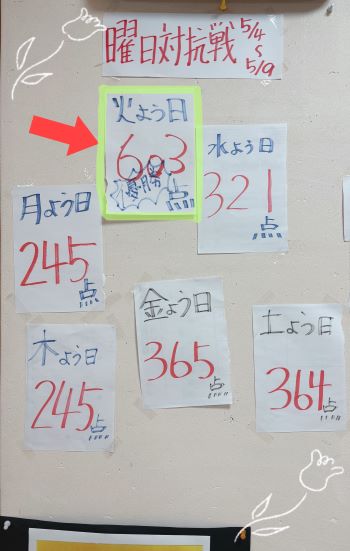 曜日対抗戦 5/4
〜
5/9
火よう日
603
優勝
点
水よう日
321
点
月よう日
245
点
金よう日
365
点
土よう日
364
点
木よう日
245
点